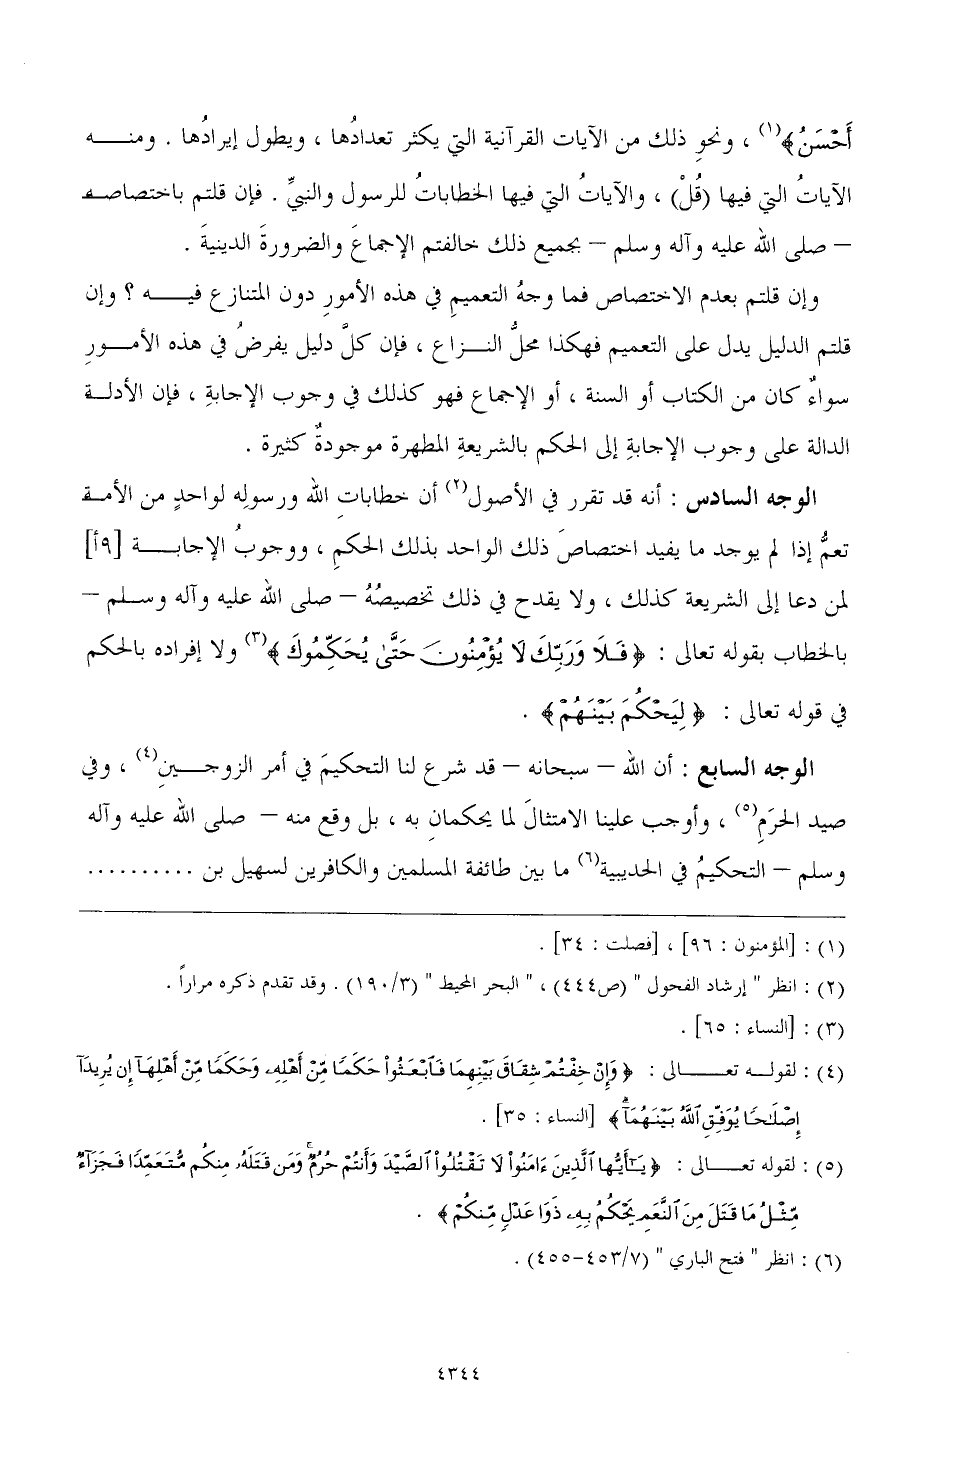 أَحْسَنُ﴾(١) ، ونحوِ ذلك من الآيات القرآنية التي يكثر تعدادُها ، ويطول إيرادُها . ومنـــه
الآياتُ التي فيها (قُلْ) ، والآياتُ التي فيها الخطاباتُ للرسول والنبيِّ . فإن قلتم باختصاصـه
– صلى الله عليه وآله وسلم – بجميع ذلك خالفتم الإجماعَ والضرورةَ الدينيةَ .
وإن قلتم بعدم الاختصاص فما وجهُ التعميمِ في هذه الأمورِ دون المتنازع فيـــه ؟ وإن
قلتم الدليل يدل على التعميم فهكذا محلُّ النـزاع ، فإن كلَّ دليل يفرضُ في هذه الأمــورِ
سواءٌ كان من الكتاب أو السنة ، أو الإجماع فهو كذلك في وجوب الإجابةِ ، فإن الأدلــة
الدالة على وجوب الإجابةِ إلى الحكم بالشريعةِ المطهرة موجودةٌ كثيرة .
الوجه السادس : أنه قد تقرر في الأصول(٢) أن خطاباتِ الله ورسولِه لواحدٍ من الأمـة
تعمُّ إذا لم يوجد ما يفيد اختصاصَ ذلك الواحد بذلك الحكمِ ، ووجوبُ الإجابـــة [٩أ]
لمن دعا إلى الشريعة كذلك ، ولا يقدح في ذلك تخصيصُهُ – صلى الله عليه وآله وسلـم –
بالخطاب بقوله تعالى : ﴿ فَلَا وَرَبِّكَ لَا يُؤْمِنُونَ حَتَّىٰ يُحَكِّمُوكَ ﴾(٣) ولا إفراده بالحكم
في قوله تعالى : ﴿ لِيَحْكُمَ بَيْنَهُمْ ﴾ .
الوجه السابع : أن الله – سبحانه – قد شرع لنا التحكيمَ في أمر الزوجــينِ(٤) ، وفي
صيد الحرَمِ(٥) ، وأوجب علينا الامتثالَ لما يحكمانِ به ، بل وقع منه – صلى الله عليه وآله
وسلم – التحكيمُ في الحديبية(٦) ما بين طائفة المسلمين والكافرين لسهيل بن ..........
(١) : [المؤمنون : ٩٦] ، [فصلت : ٣٤] .
(٢) : انظر " إرشاد الفحول " (ص٤٤٤) ، " البحر المحيط " (٣/١٩٠) . وقد تقدم ذكره مراراً .
(٣) : [النساء : ٦٥] .
(٤) : لقولـه تعـــالى : ﴿ وَإِنْ خِفْتُمْ شِقَاقَ بَيْنِهِمَا فَٱبْعَثُوا۟ حَكَمًا مِّنْ أَهْلِهِۦ وَحَكَمًا مِّنْ أَهْلِهَآ إِن يُرِيدَآ
إِصْلَـٰحًا يُوَفِّقِ ٱللَّهُ بَيْنَهُمَآ ۗ ﴾ [النساء : ٣٥] .
(٥) : لقوله تعـــالى : ﴿ يَـٰٓأَيُّهَا ٱلَّذِينَ ءَامَنُوا۟ لَا تَقْتُلُوا۟ ٱلصَّيْدَ وَأَنتُمْ حُرُمٌ ۚ وَمَن قَتَلَهُۥ مِنكُم مُّتَعَمِّدًا فَجَزَآءٌ
مِّثْلُ مَا قَتَلَ مِنَ ٱلنَّعَمِ يَحْكُمُ بِهِۦ ذَوَا عَدْلٍ مِّنكُمْ ﴾ .
(٦) : انظر " فتح الباري " (٧/٤٥٣–٤٥٥) .
٤٣٤٤